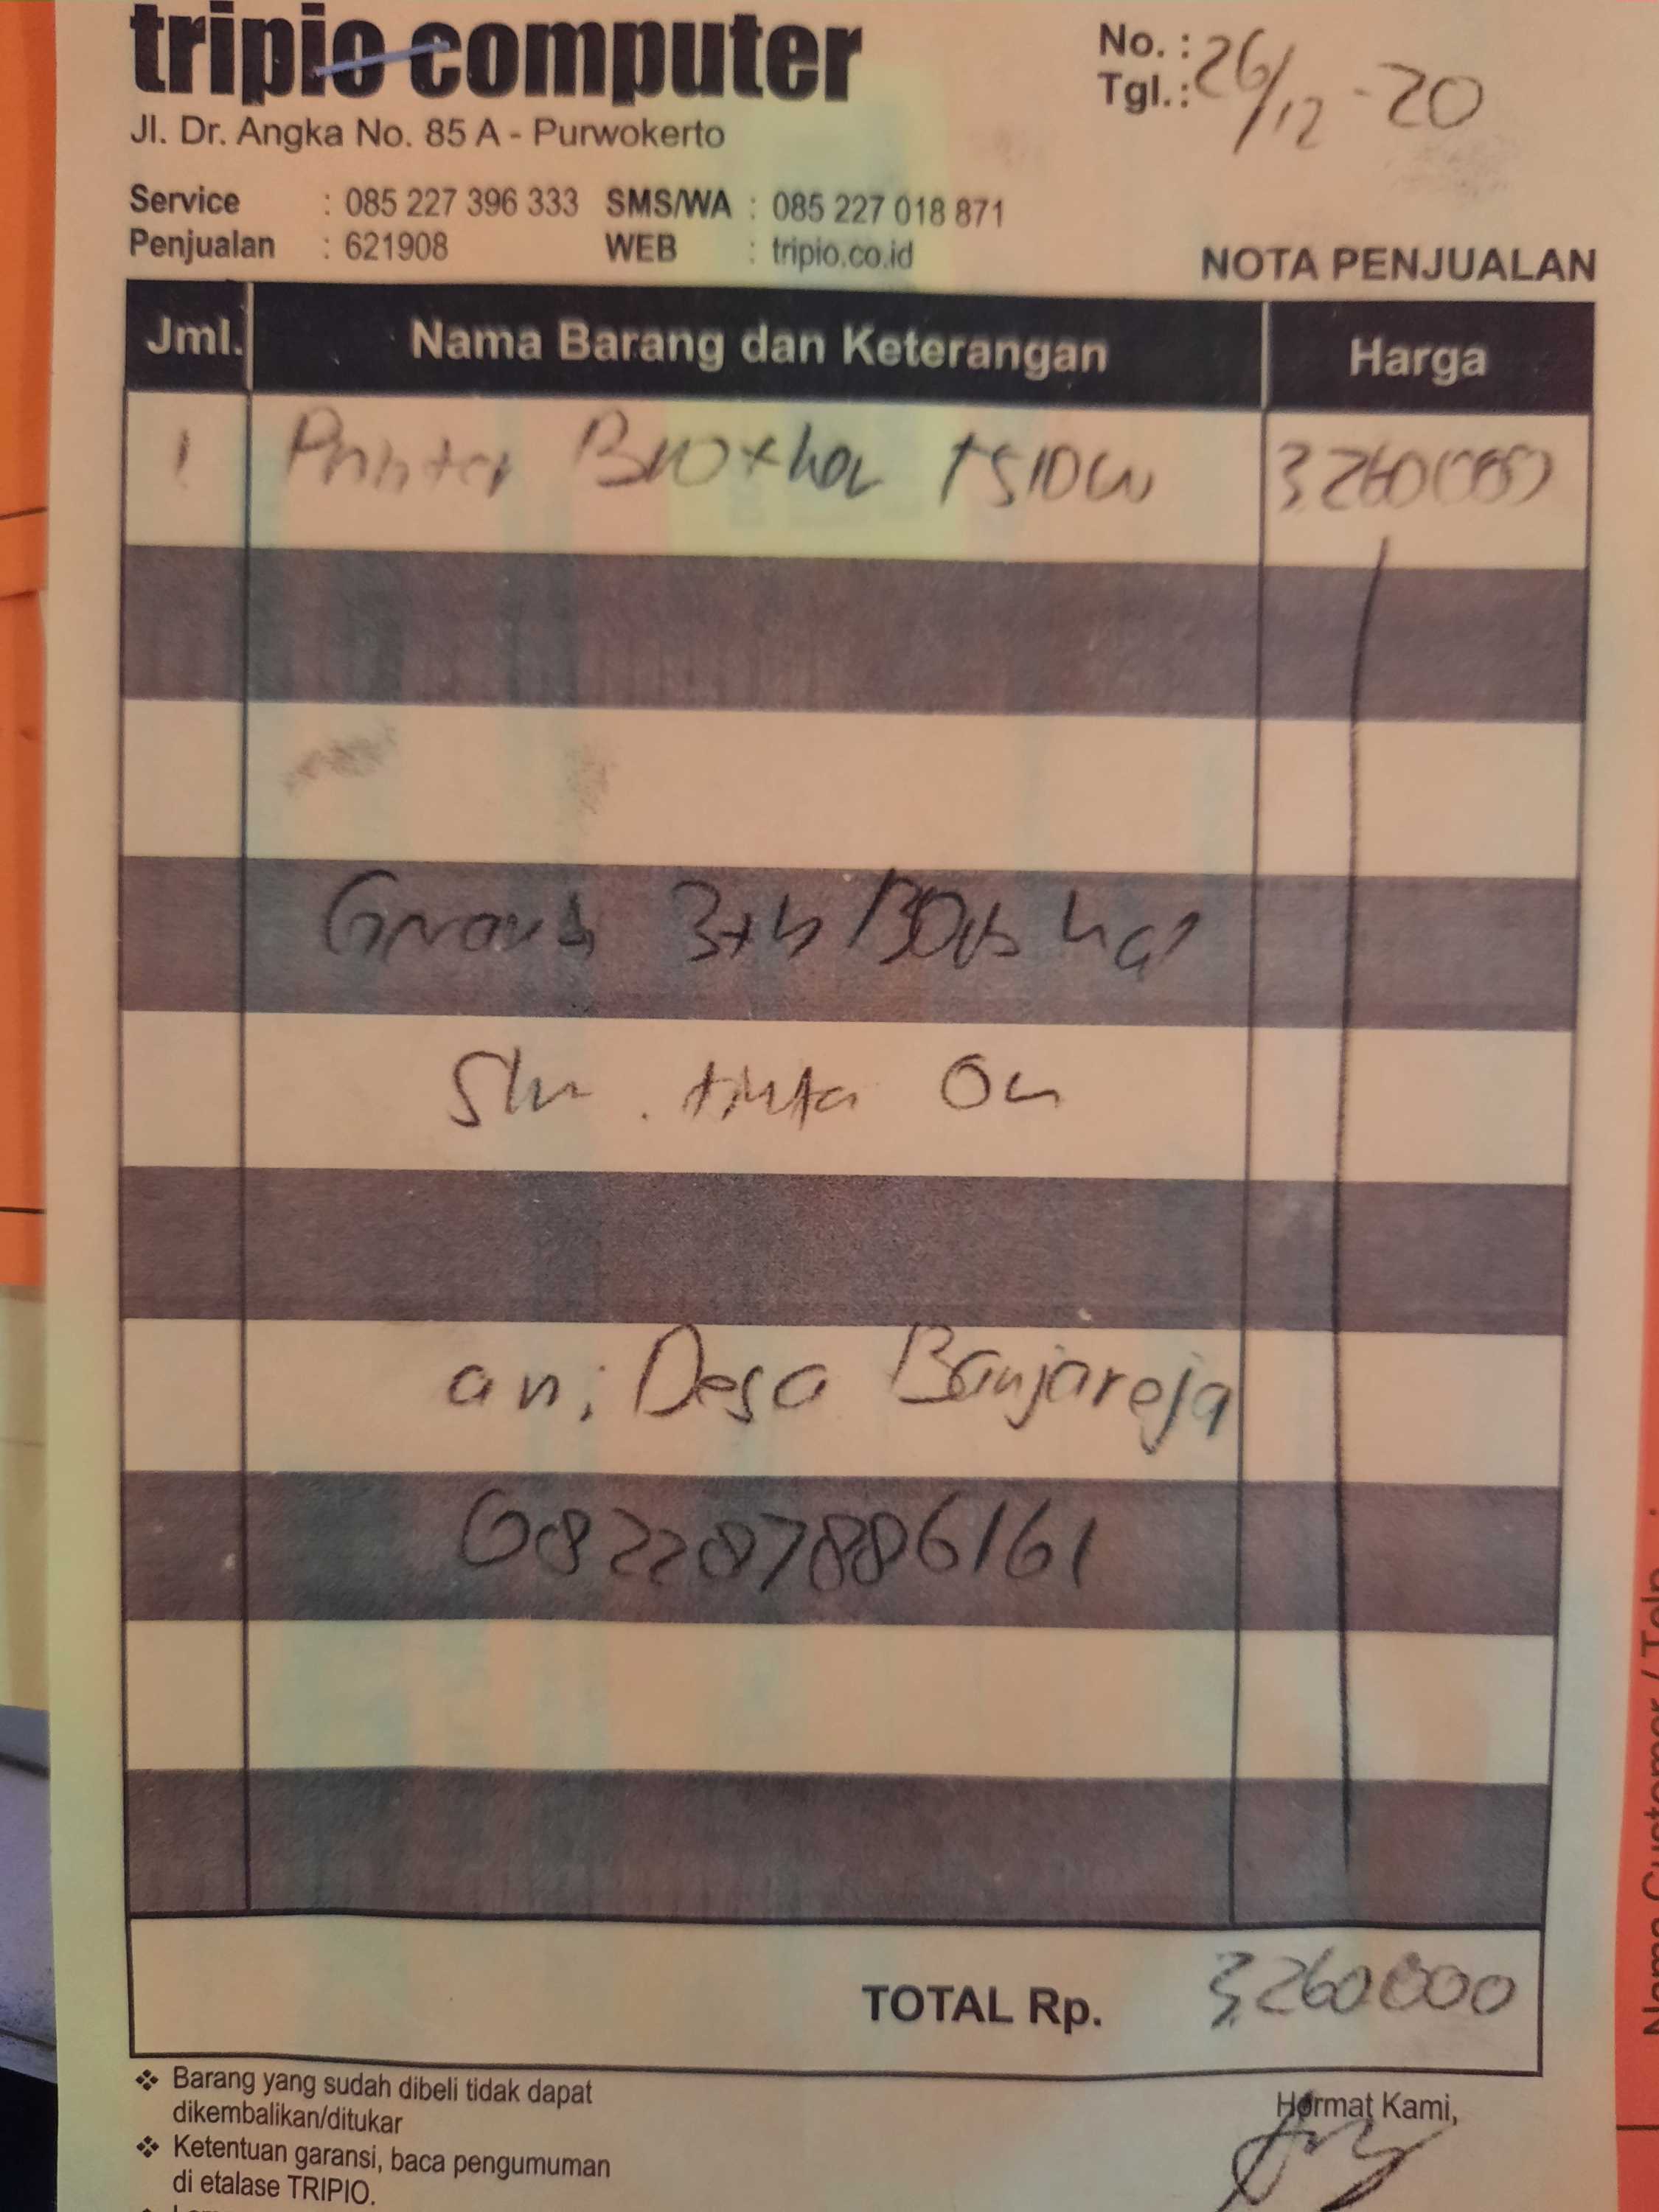 tripio computer
No. :
Tgl. : 26/12 - 20
Jl. Dr. Angka No. 85 A - Purwokerto
Service : 085 227 396 333 SMS/WA : 085 227 018 871
Penjualan : 621908 WEB : tripio.co.id
NOTA PENJUALAN
Jml. Nama Barang dan Keterangan Harga
1 Printer Brother T510W 3.260.000
3th/30rb
tinta
an; Desa Banjareja
082287886161
TOTAL Rp. 3.260.000
❖ Barang yang sudah dibeli tidak dapat
dikembalikan/ditukar
❖ Ketentuan garansi, baca pengumuman
di etalase TRIPIO.
Hormat Kami,
Nama Customer / Telp